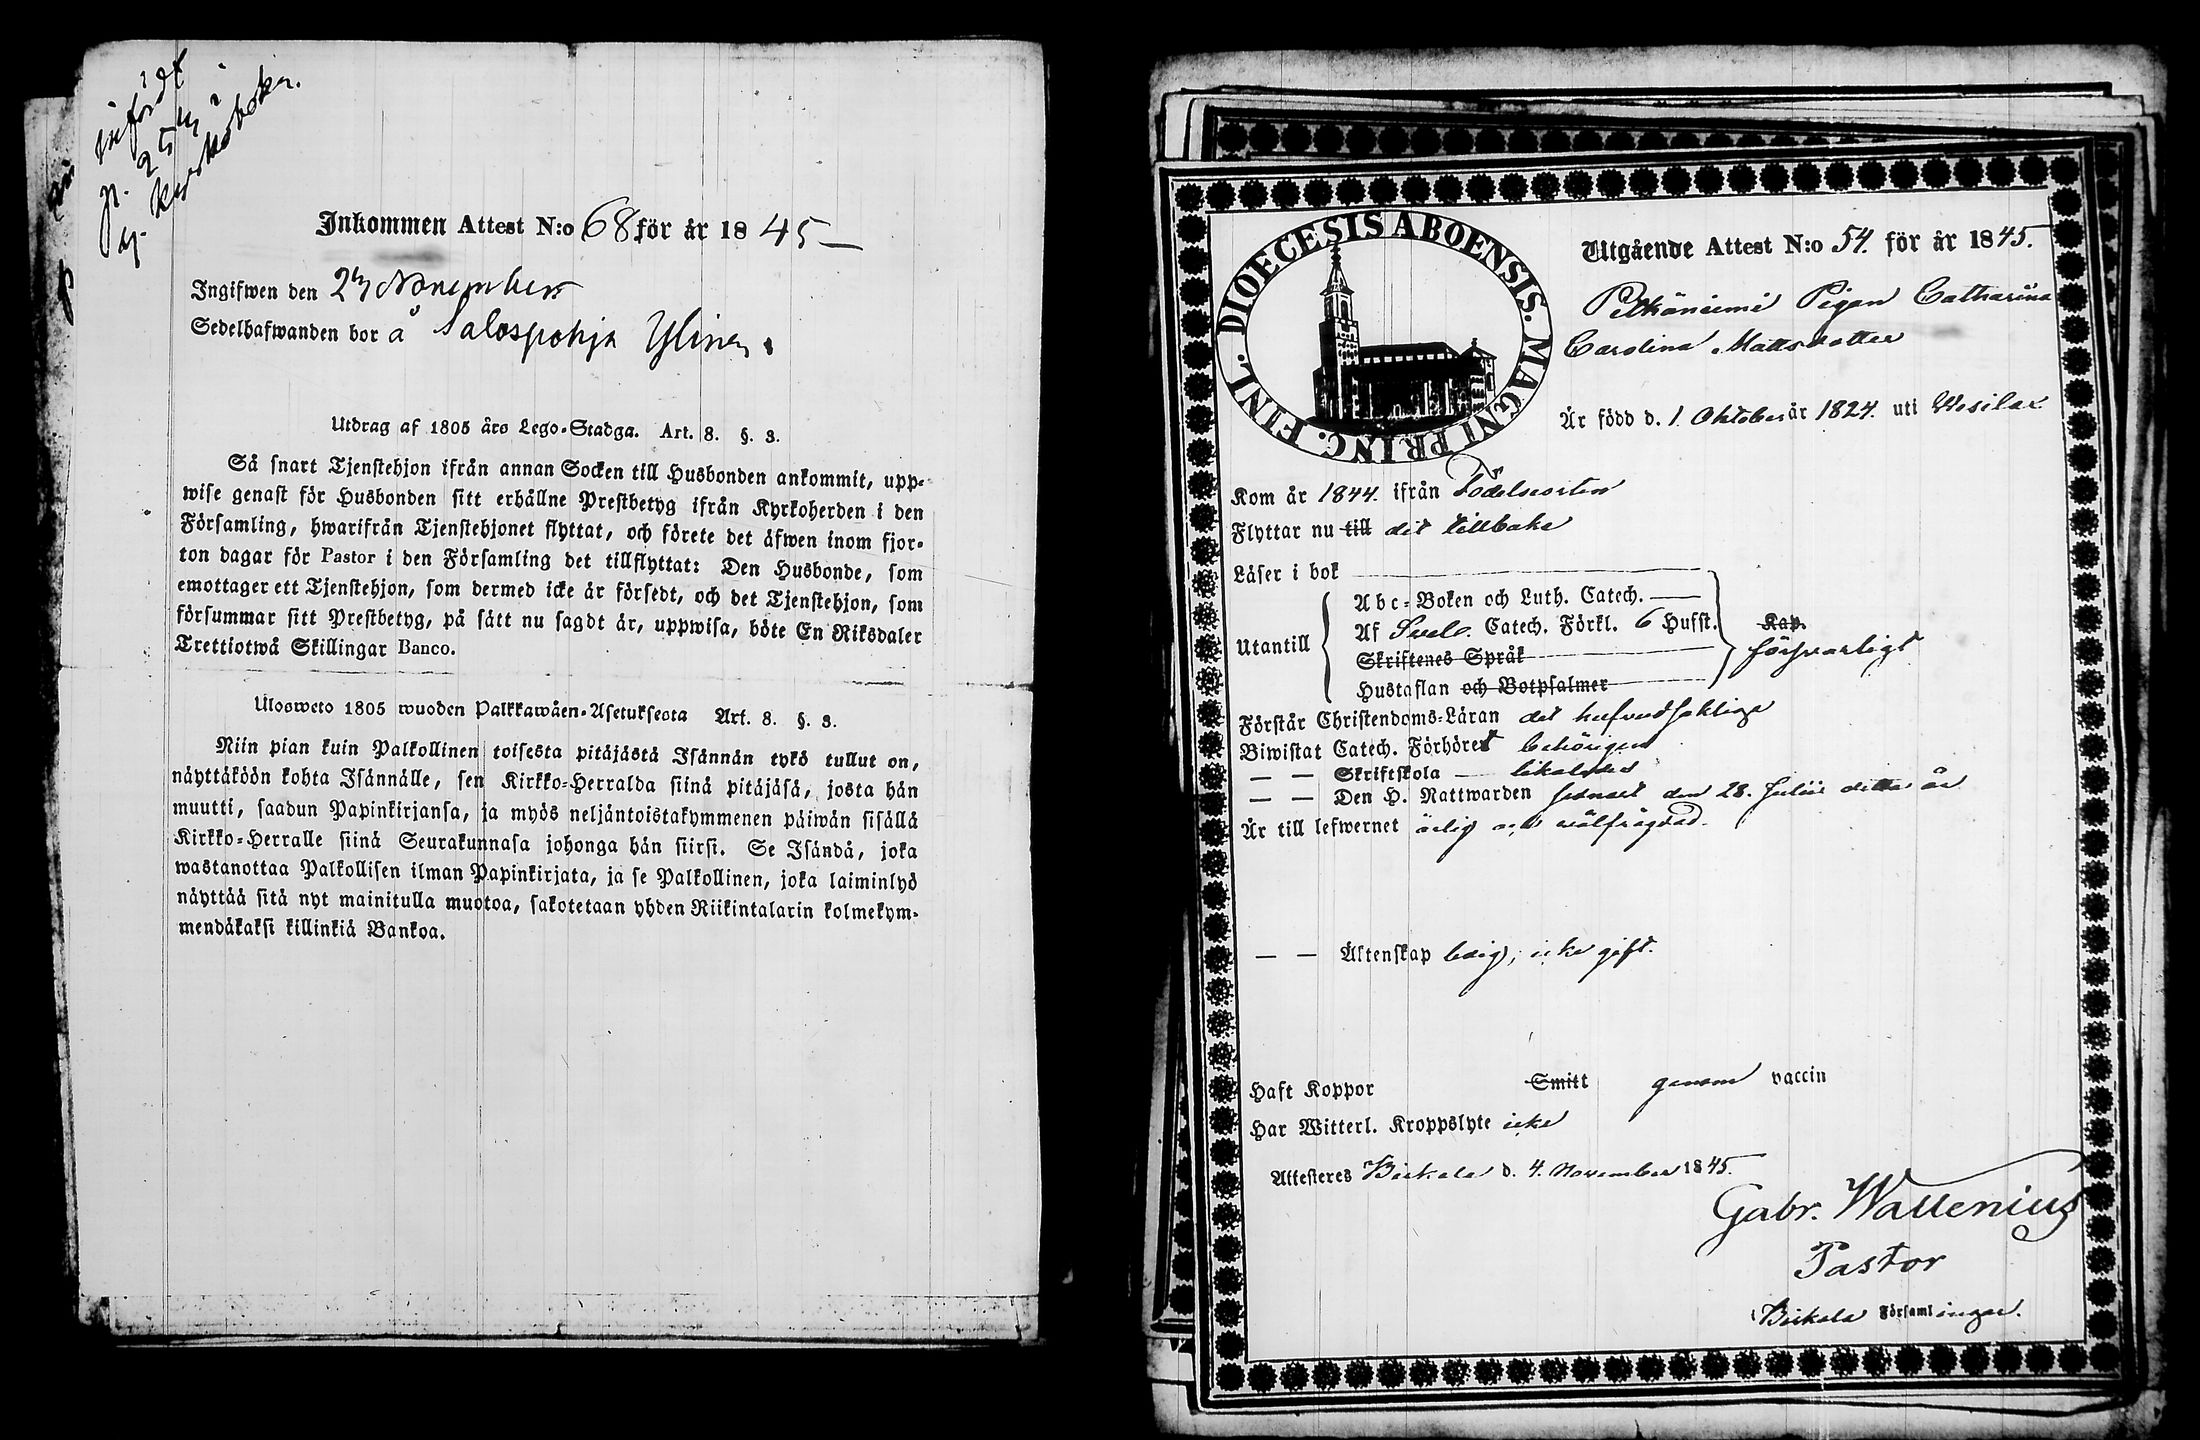 infördt
p. 25
kyrkoboken.
Inkommen Attest N:o 68 för år 1845
Ingifwen den 27 November
Sedelhafwanden bor å Salospohja Ylinen
Utdrag af 1805 års Lego-Stadga. Art. 8. §. 3.
Så snart Tjenstehjon ifrån annan Socken till Husbonden ankommit, upp-
wise genast för Husbonden sitt erhållne Prestbetyg ifrån Kyrkoherden i den
Församling, hwarifrån Tjenstehjonet flyttat, och förete det äfwen inom fjor-
ton dagar för Pastor i den Församling det tillflyttat: Den Husbonde, som
emottager ett Tjenstehjon, som dermed icke är försedt, och det Tjenstehjon, som
försummar sitt Prestbetyg, på sätt nu sagdt är, uppwisa, böte En Riksdaler
Trettiotwå Skillingar Banco.
Ulosweto 1805 wuoden Palkkawäen-Asetuksesta Art. 8. §. 3.
Niin pian kuin Palkollinen toisesta pitäjästä Isännän tykö tullut on,
näyttäköön kohta Isännälle, sen Kirkko-Herralda siinä pitäjäsä, josta hän
muutti, saadun Papinkirjansa, ja myös neljäntoistakymmenen päiwän sisällä
Kirkko-Herralle siinä Seurakunnasa johonga hän siirsi. Se Isändä, joka
wastanottaa Palkollisen ilman Papinkirjata, ja se Palkollinen, joka laiminlyö
näyttää sitä nyt mainitulla muotoa, sakotetaan yhden Riikintalarin kolmekym-
mendäkaksi killinkiä Bankoa.
DIOECESIS ABOENSIS. MAGNI PRINC. FINL.
Utgående Attest N:o 54. för år 1845.
Pitkäniemi Pigan Catharina
Carolina Mattsdotter
Är född d. 1 Oktober år 1824. uti Wesilax
Kom år 1844. ifrån Födelseorten
Flyttar nu till dit tillbaka
Läser i bok
Abc-Boken och Luth. Catech.
Utantill Af Sveb. Catech. Förkl. 6 Hufst. Kap.
Skriftenes Språk försvarligt
Hustaflan och Botpsalmer
Förstår Christendoms-Läran det hufvudsakliga
Biwistat Catech. Förhöret behörigen
— — Skriftskola likaledes
— — Den H. Nattwarden senast den 28. Julii detta år
Är till lefwernet ärlig och wälfrägdad.
— — Äktenskap ledig, icke gift.
Haft Koppor Smitt genom vaccin
Har Witterl. Kroppslyte icke
Attesteres Birkala d. 4. November 1845.
Gabr. Wallenius
Pastor
i Birkala Församlingar.